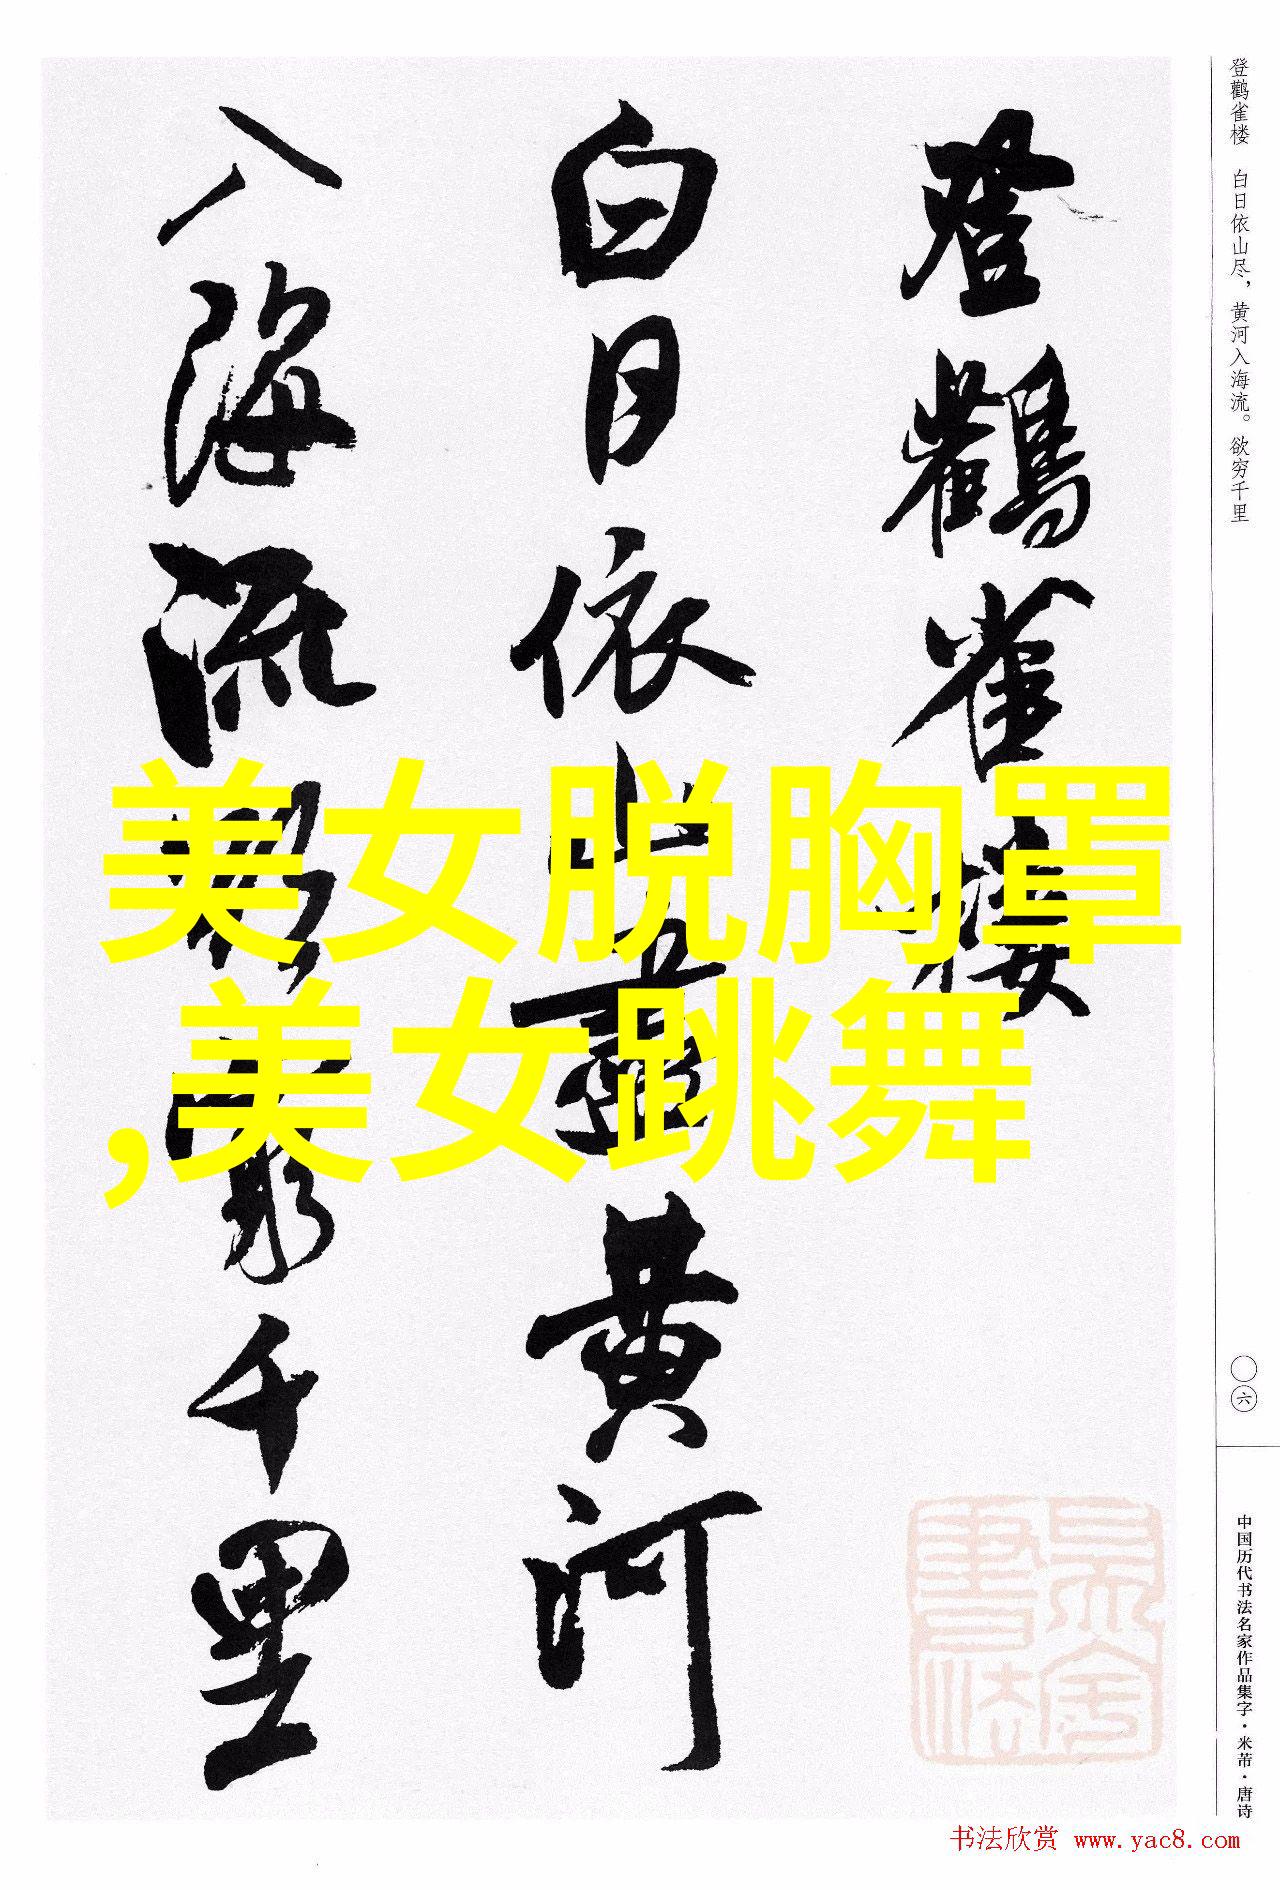 登鹳雀楼
白日依山尽黄河
入海流欲穷千里
美女脱胸罩
,美女跳舞
登鹳雀楼 白日依山尽，黄河入海流。欲穷千里
〇六
中国历代书法名家作品集字·米芾·唐诗
书法欣赏 www.yac8.com